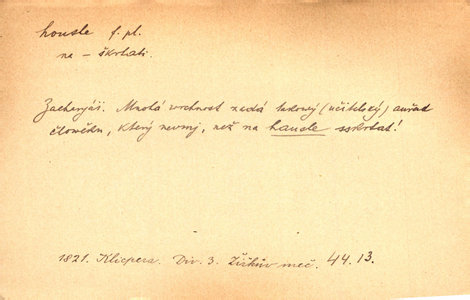 housle f. pl.
na – škrtati.
Zacharyáš. Mnohá wrchnost nedá takový (učitelský) auřad
člowěku, který neumj, než na hausle sskrtat!
1821. Klicpera. Div. 3. Žižkův meč. 44. 13.